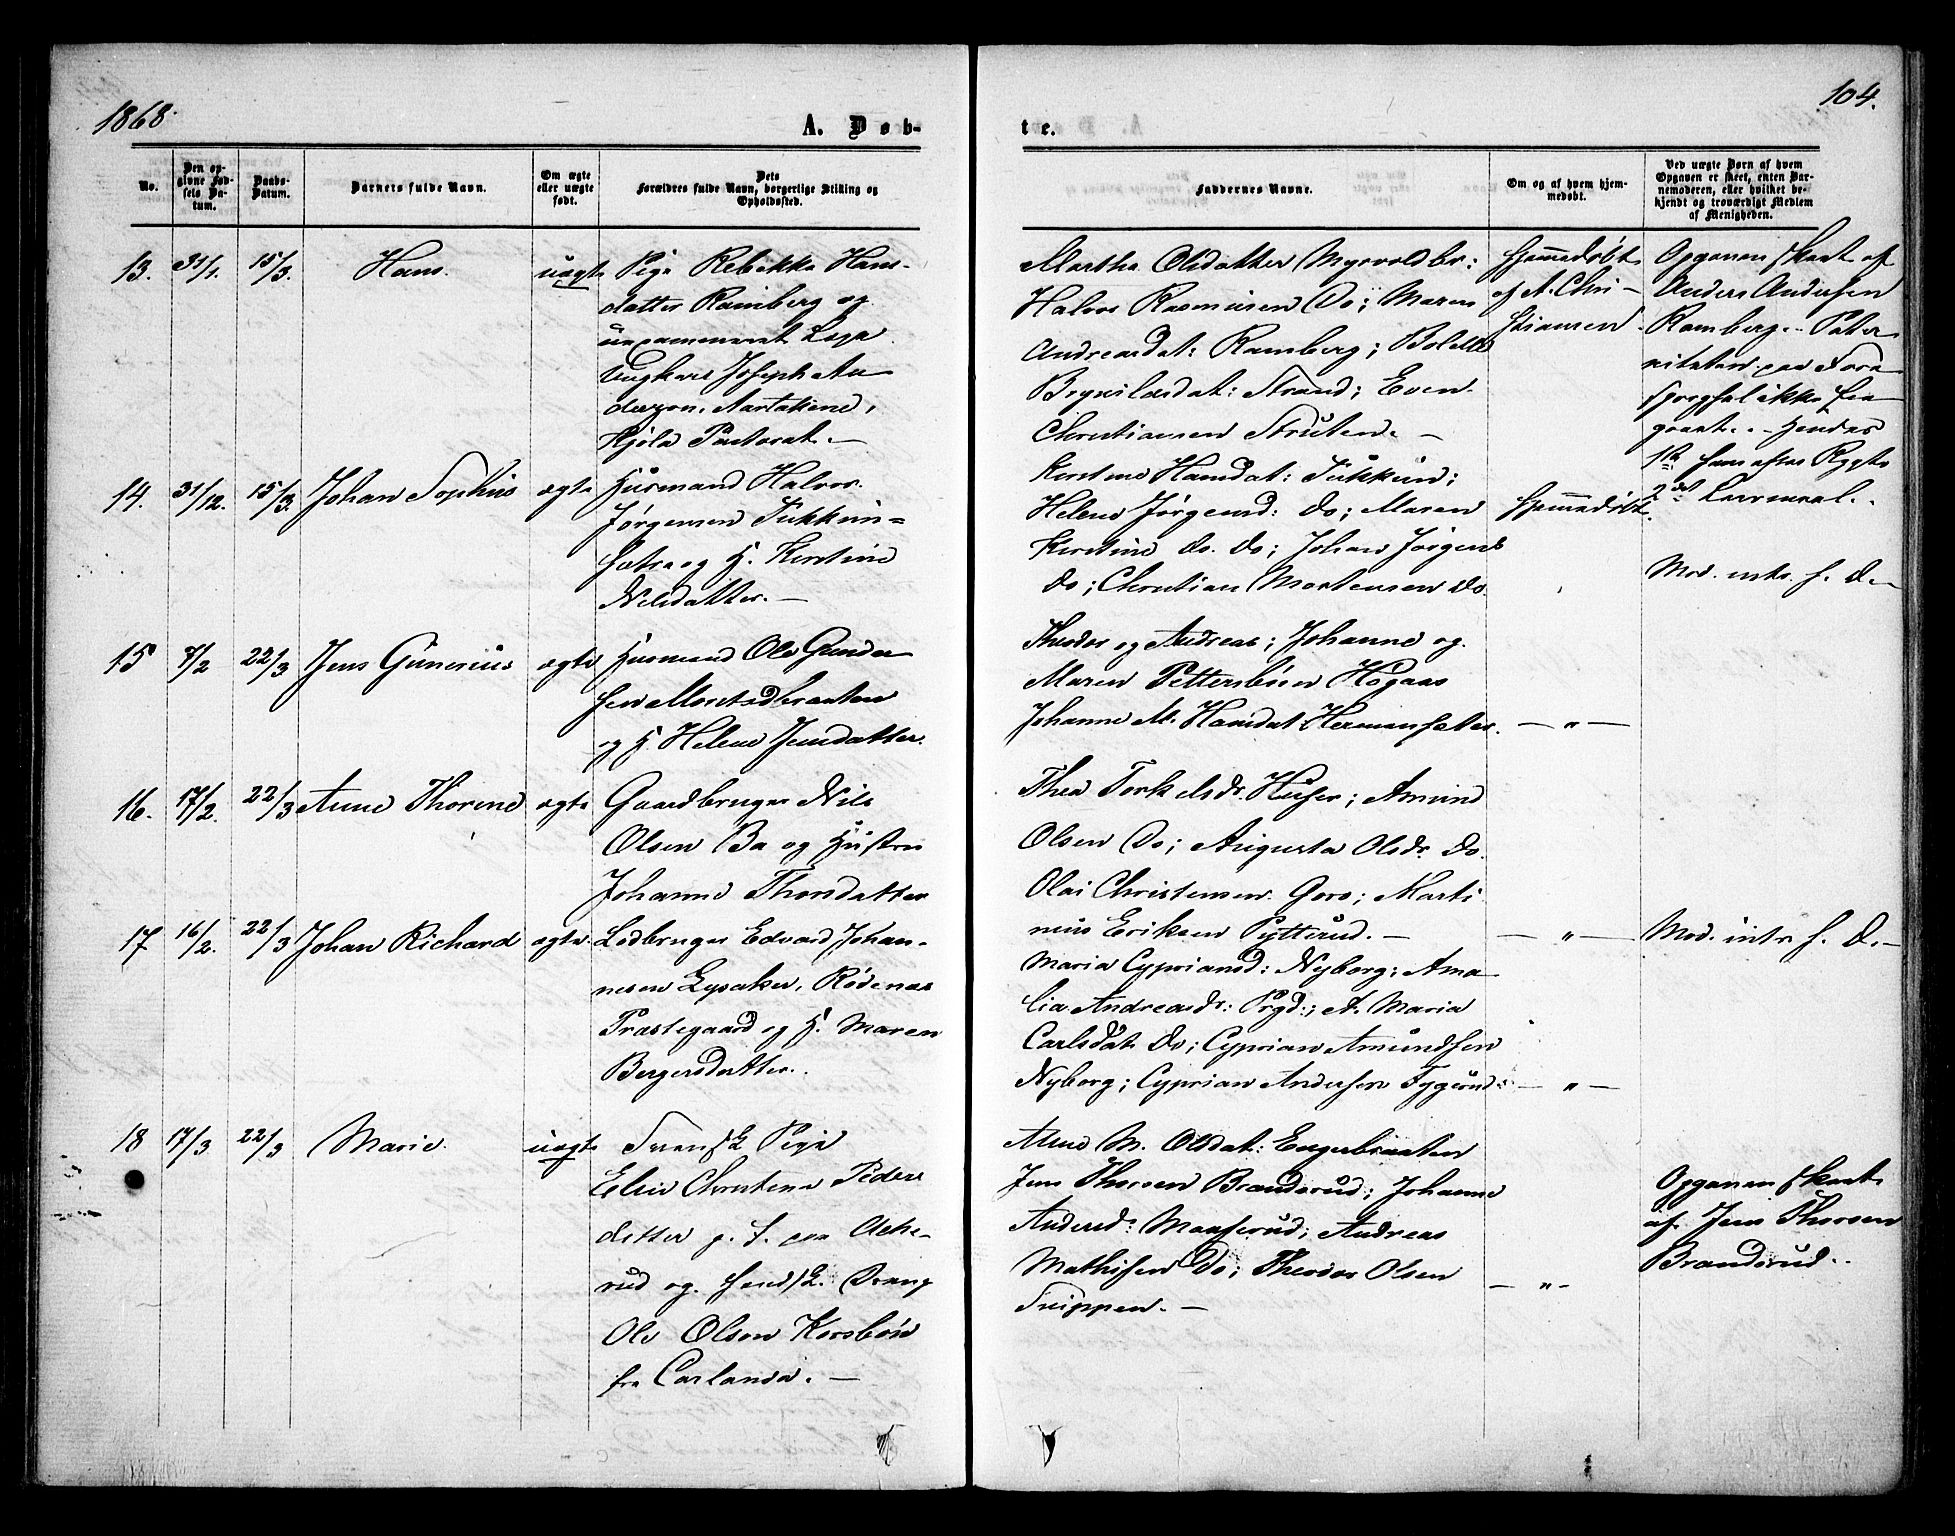 1868.
104.
A. Døb-
te.
No.
Den op-
givne Fød-
sels Da-
tum.
Daabs-
Datum.
Barnets fulde Navn.
Om ægte
eller uægte
født.
Dets
Forældres fulde Navn, borgerlige Stilling og
Opholdssted.
Faddernes Navne.
Om og af hvem hjem-
medøbt.
Ved uægte Børn af hvem
Opgaven er skeet, enten Bar-
nemoderen, eller hvilket be-
kjendt og troværdigt Medlem
af Menigheden.
13. 31/1. 15/3. Hans. uægte Pige Rebekka Hans-
datter Ramberg og
Ungkarl Joseph An
derson,
Pastorat. —
Martha Olsdatter Myrvoldbr:
Halvor Rasmusen Do; Maren
Andreasdat: Ramberg; Bolette
Brynildsdat: Strand; Even
Christiansen Struten. —
Hjemmedøbt
af A. Chri-
stiansen
Opgaven skeet af
Anders Andersen
Ramberg. Pater
niteten paa Fore
spørgsel ikke fra
gaaet. Hendes
1ste hans efter Rygte
2det Leiermaal.
14. 31/12. 15/3. Johan Sophus ægte Husmand Halvor
Jørgensen Tukkun=
sætre og H. Kirstine
Nilsdatter. —
Kirstine Hansdat: Tukkun;
Helene Jørgensd: Do; Maren
Kirstine Do. Do; Johan Jørgens
Do; Christian Mortensen Do.
Hjemmedøbt.
Mod. intr. f. D. —
15 7/2 22/3 Jens Gunerius ægte Husmand Ole Gunder
sen Morstadbraaten
og H. Helene Jensdatter.
Theodor og Andreas; Johanne og
Maren Pettersbøen Høgaas
Johanne M. Hansdat. Hermansæter.
— " —
16. 17/2. 22/3 Anne Thorine ægte Gaardbruger Nils
Olsen Ba og Hustru
Johanne Thorsdatter
Thea Torkelsdr. Huser; Amund
Olsen Do; Augusta Olsdr. Do.
Olai Christensen Goro; Marti
nius Eriksen Pytterud. —
— " —
Mod. intr. f. D. —
17 16/2. 22/3 Johan Richard ægte. Ledbruger Edvard Johan-
nesen Lysaker, Rødenæs
Præstegaard og H. Maren
Bergersdatter.
Maria Cypriansd: Nyborg; Ama
lia Andreasdr: Prgd:; A. Maria
Carlsdat. Do; Cyprian Amundsen
Nyborg; Cyprian Andersen Tygerud.
— " —
18 17/3 22/3 Marie. uægte Svensk Pige
Elsie Christina Peders
datter p. t. paa Ache-
rud og
Ole Olsen Korsbøn
fra Carlanda. —
Anne M. Olsdat: Engerbraaten
Jens Thorsen Brandsrud; Johanne
Andersd: Manserud; Andreas
Mathisen Do; Theodor Olsen
Snippen. —
— " —
Opgaven skeet
af Jens Thorsen
Brandsrud.